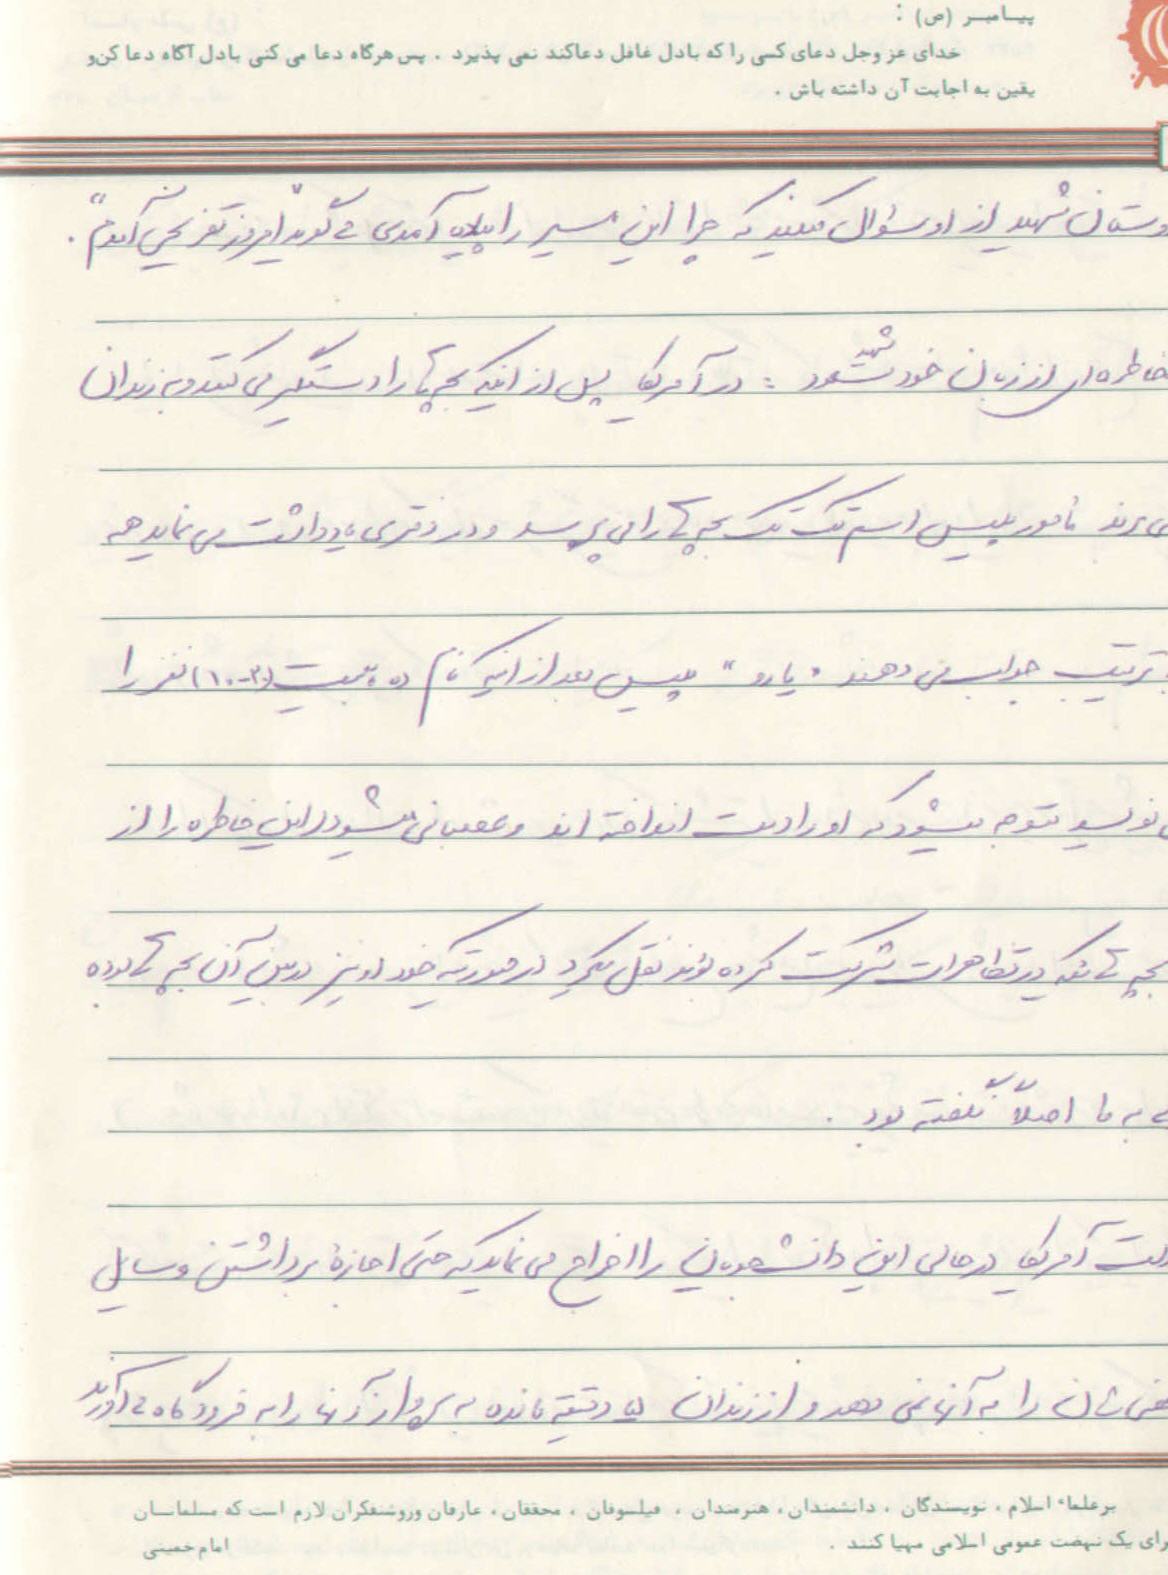 پیـامبـر (ص) :
خدای عز وجل دعای کسی را که بادل غافل دعاکند نمی پذیرد . پس هرگاه دعا می کنی بادل آگاه دعا کن و
یقین به اجابت آن داشته باش .
وستان شهید از او سؤال میکنند که چرا این مسیر را پیاده آمدی می گوید "امروز تفریحی آمدم" .
خاطره ای از زبان خود شهید : در آمریکا پس از اینکه بچه ها را دستگیر می کنند و به زندان
می برند مأمور پلیس اسم تک تک بچه ها را می پرسد و در دفتری یادداشت می نماید همه
به ترتیب جواب می دهند " یارو " پلیس بعد از اینکه نام ده بیست (۲۰-۱۰) نفر را
می نویسد متوجه میشود که او را دست انداخته اند و عصبانی میشود این خاطره را از
بچه هائیکه در تظاهرات شرکت کرده بودند نقل میکرد در صورتیکه خود او نیز در بین آن بچه ها بوده
به ما اصلاً نگفته بود .
ولت آمریکا در حالی این دانشجویان را اخراج می نماید که حتی اجازهٔ برداشتن وسایل
شان را به آنها نمی دهد و از زندان دقیقه مانده به پرواز آنها را به فرودگاه می آورند
برعلماء اسلام ، نویسندگان ، دانشمندان ، هنرمندان ، فیلسوفان ، محققان ، عارفان وروشنفکران لازم است که مسلمانـان
رای یک نهضت عمومی اسلامی مهیا کنند .
امام خمینی